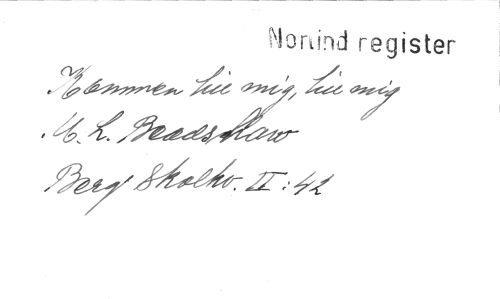 Norlind register
Kommen hit mig, hit mig
M. L. Beadshaw
Berg Skolkv. II: 42